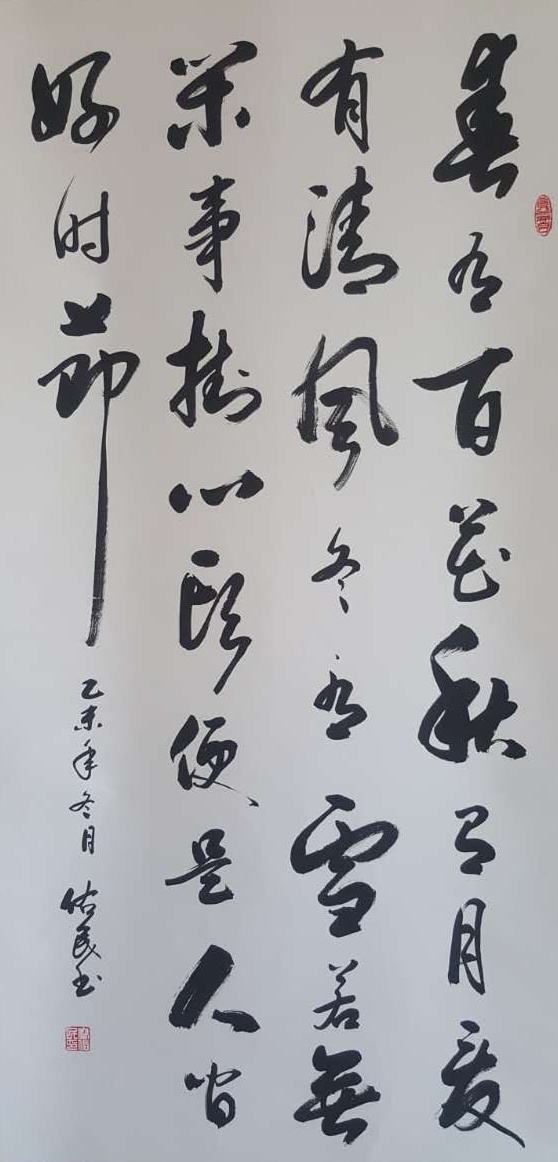 春有百花秋有月夏
有清風冬有雪若無
閑事掛心頭便是人間
好时節
乙未年冬月 佑民书